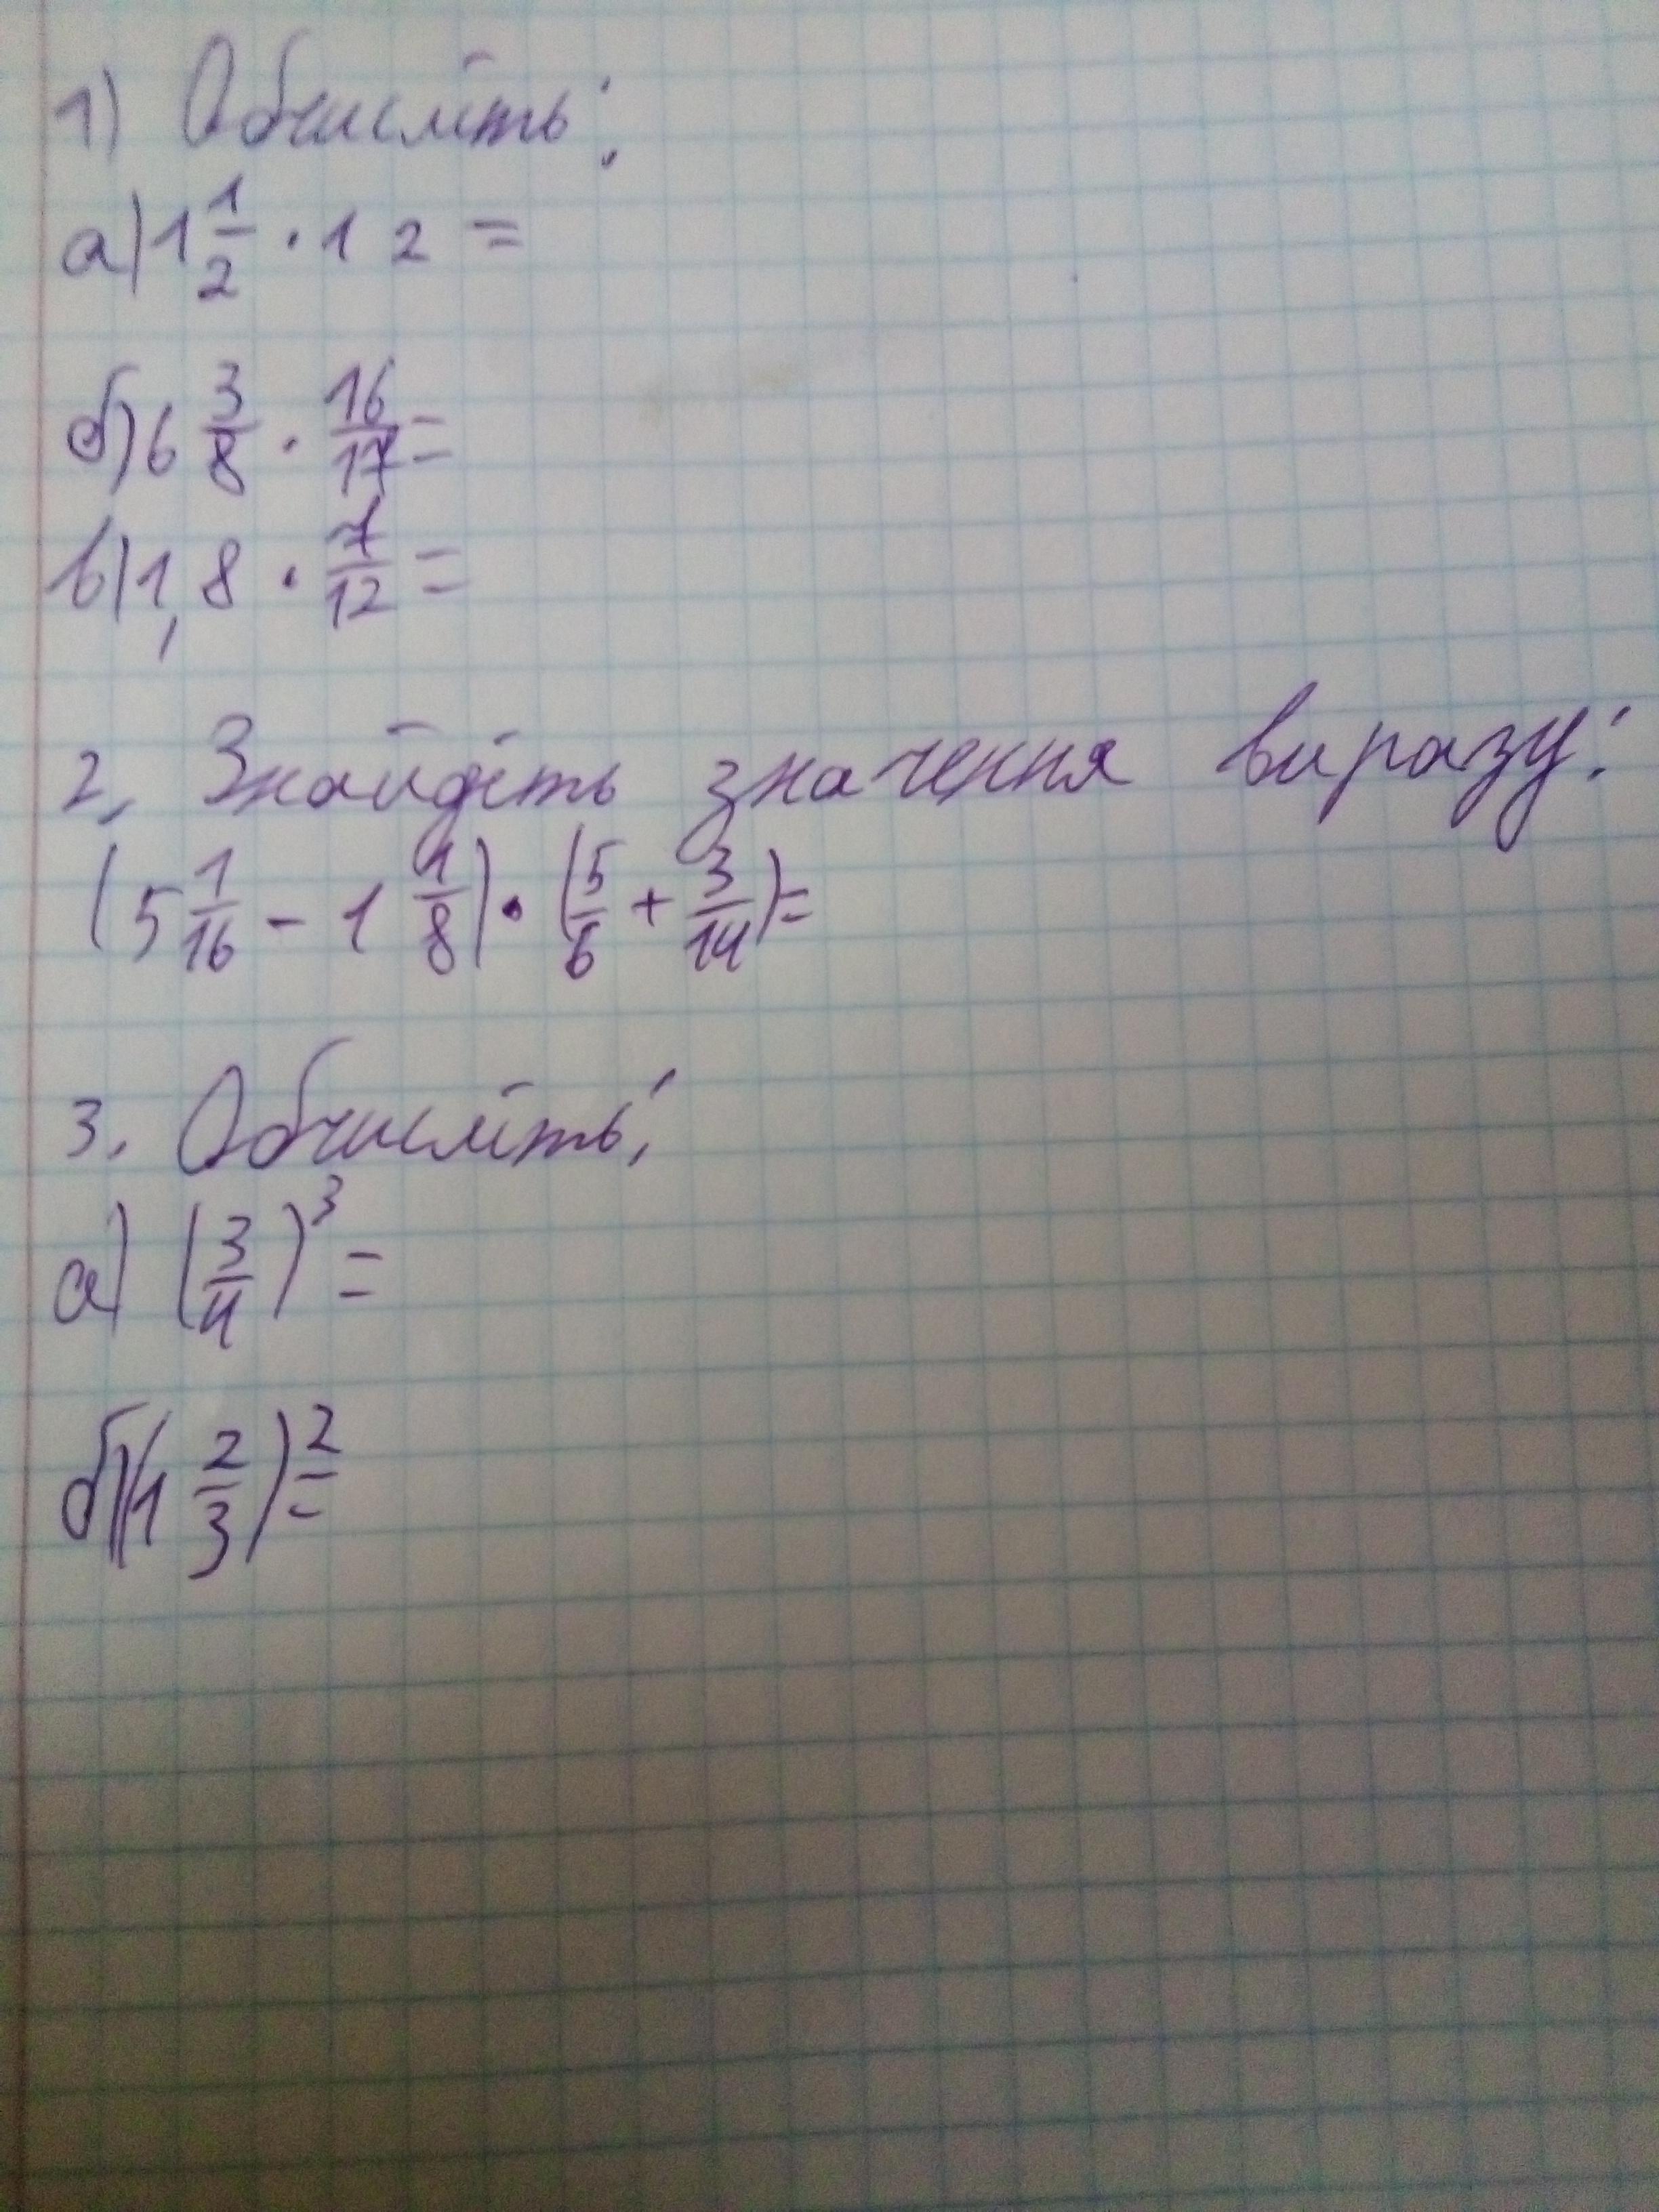 1) Обчисліть:
а) 1 1/2 · 12 =
б) 6 3/8 · 16/17 =
в) 1,8 · 7/12 =
2. Знайдіть значення виразу:
(5 1/16 - 1 1/8) · (5/6 + 3/14) =
3. Обчисліть:
а) (3/4)³ =
б) (1 2/3)² =